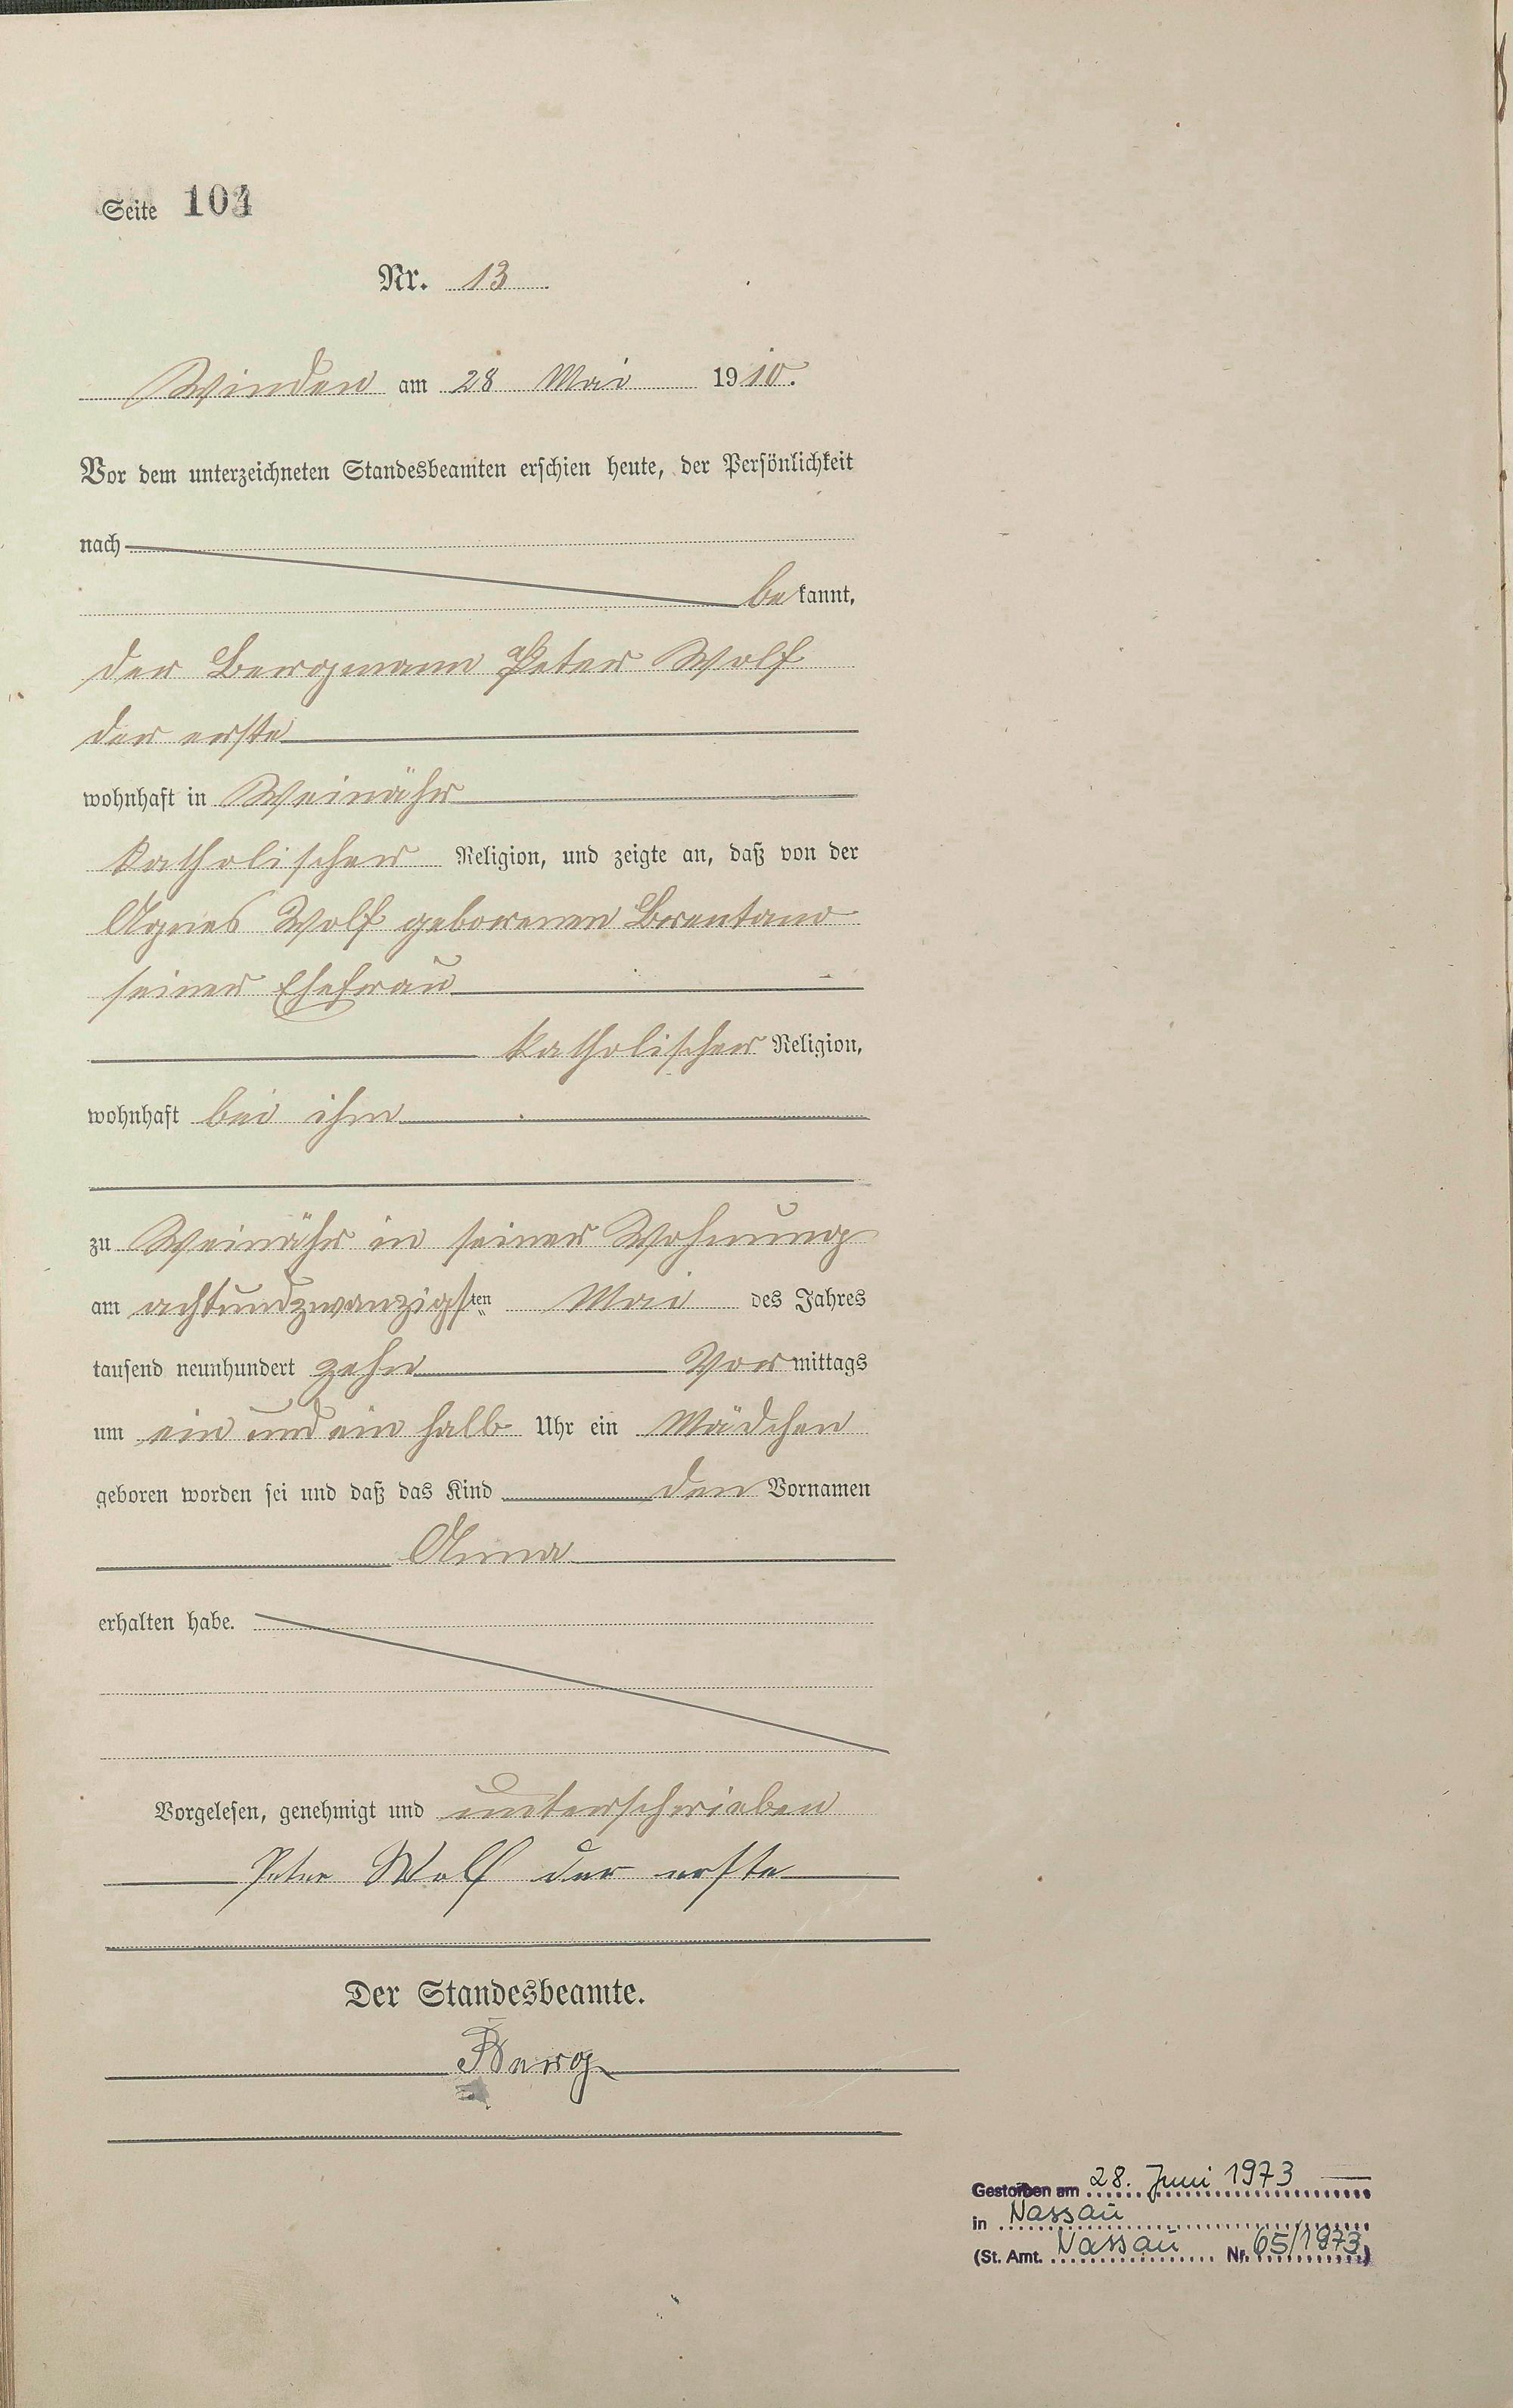 Seite 104
Nr. 13
Winden am 28 Mai 1910.
Vor dem unterzeichneten Standesbeamten erschien heute, der Persönlichkeit
nach
be kannt,
der Bergmann Peter Wolf
der erste
wohnhaft in Weinähr
katholischer Religion, und zeigte an, daß von der
Agnes Wolf geborenen Brentano
seiner Ehefrau
katholischer Religion,
wohnhaft bei ihm
zu Weinähr in seiner Wohnung
am achtundzwanzigsten Mai des Jahres
tausend neunhundert zehn Vormittags
um ein und ein halb Uhr ein Mädchen
geboren worden sei und daß das Kind den Vornamen
Anna
erhalten habe.
Vorgelesen, genehmigt und unterschrieben
Peter Wolf der erste
Der Standesbeamte.
Berg
Gestorben am 28. Juni 1973
in Nassau
(St. Amt. Nassau Nr. 65/1973)